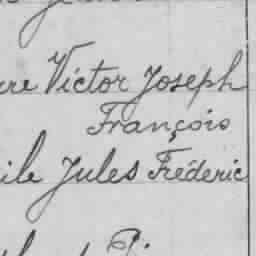 re Victor Joseph
François
ile Jules Fréderic